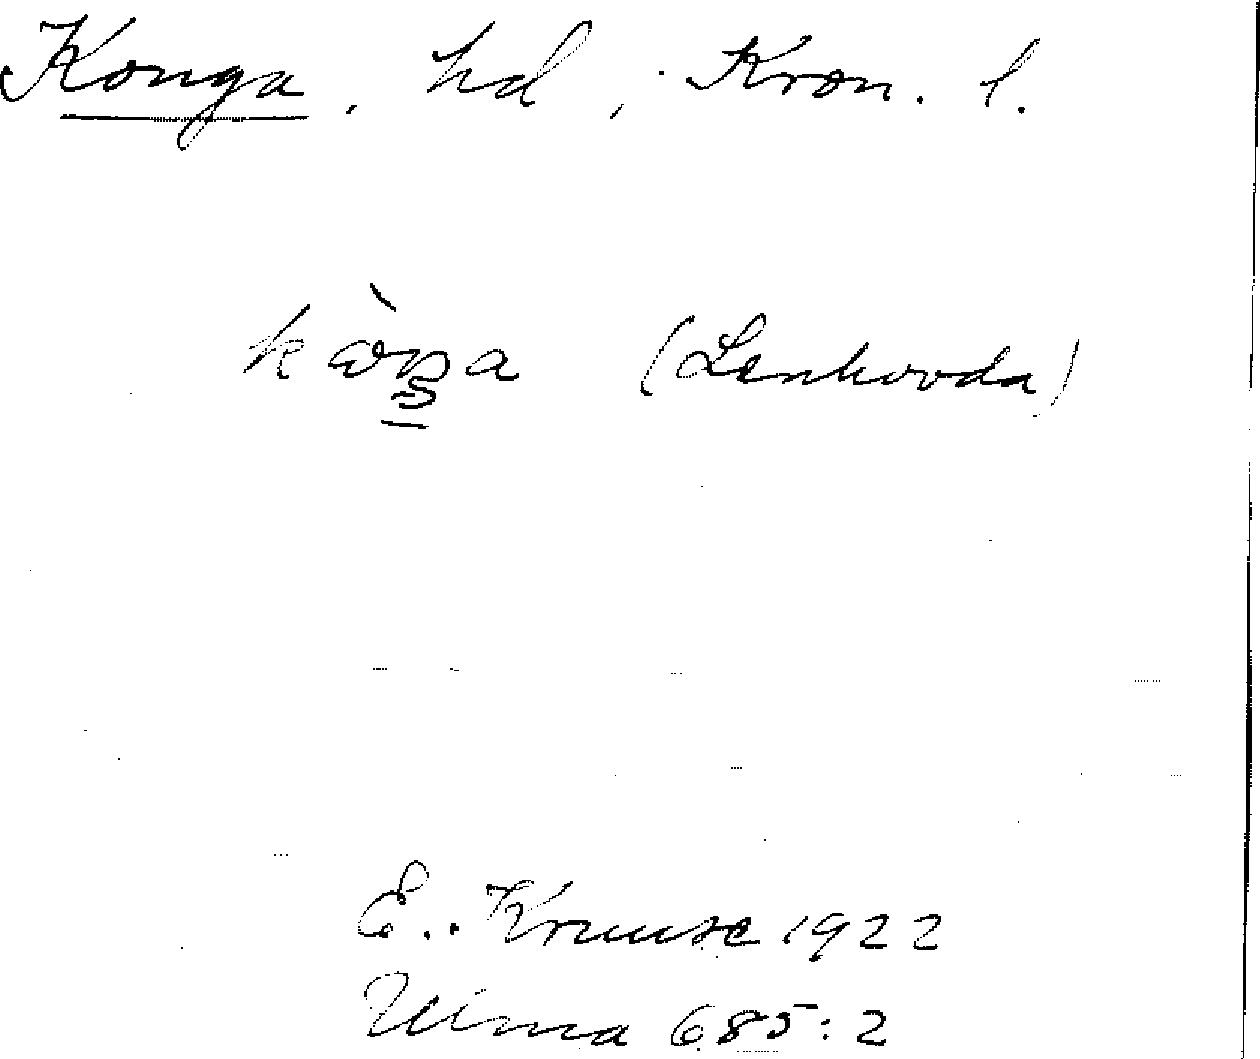 Konga, hd, Kron. l.
(Lenhovda)
E. Kruuse 1922
Ulma 685:2